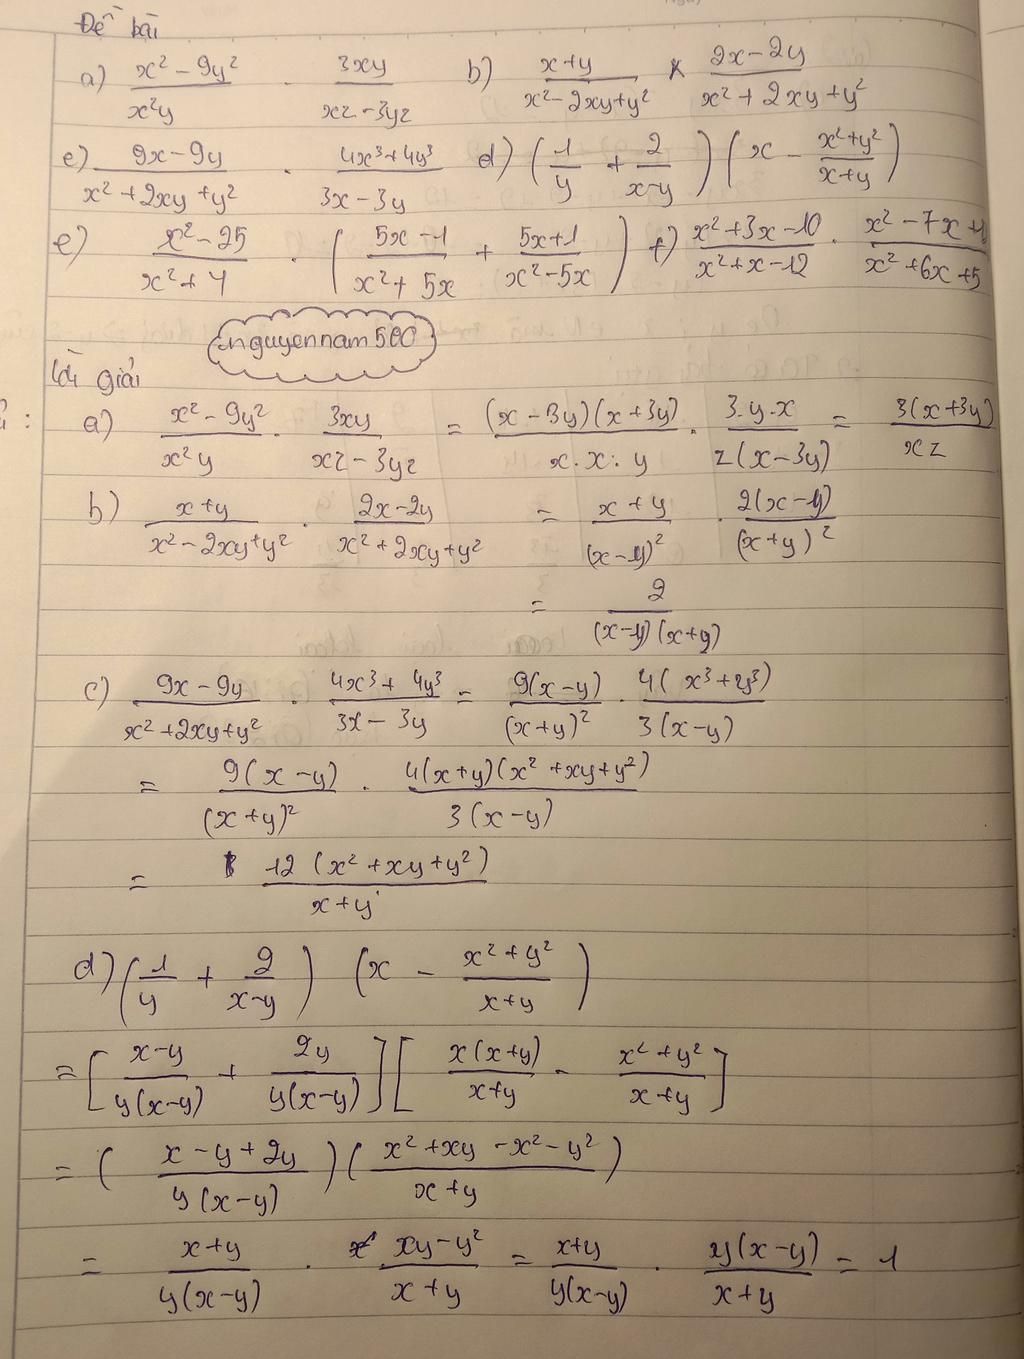 Đề bài
a) \frac{x² - 9y²}{x²y} . \frac{3xy}{xz - 3yz} b) \frac{x+y}{x² - 2xy + y²} × \frac{2x - 2y}{x² + 2xy + y²}
c) \frac{9x - 9y}{x² + 2xy + y²} . \frac{4x³ + 4y³}{3x - 3y} d) (\frac{1}{y} + \frac{2}{x-y}) (x - \frac{x² + y²}{x+y})
e) \frac{x² - 25}{x² + 4} . (\frac{5x - 1}{x² + 5x} + \frac{5x + 1}{x² - 5x}) f) \frac{x² + 3x - 10}{x² + x - 12} . \frac{x² - 7x +}{x² + 6x + 5}
nguyennam500
Lời giải
a) \frac{x² - 9y²}{x²y} . \frac{3xy}{xz - 3yz} = \frac{(x - 3y)(x + 3y)}{x . x . y} . \frac{3.y.x}{z(x - 3y)} = \frac{3(x + 3y)}{xz}
b) \frac{x+y}{x² - 2xy + y²} . \frac{2x - 2y}{x² + 2xy + y²} = \frac{x+y}{(x-y)²} . \frac{2(x-y)}{(x+y)²}
= \frac{2}{(x-y)(x+y)}
c) \frac{9x - 9y}{x² + 2xy + y²} . \frac{4x³ + 4y³}{3x - 3y} = \frac{9(x-y)}{(x+y)²} . \frac{4(x³ + y³)}{3(x-y)}
= \frac{9(x-y)}{(x+y)²} . \frac{4(x+y)(x² + xy + y²)}{3(x-y)}
= \frac{12(x² + xy + y²)}{x+y}
d) (\frac{1}{y} + \frac{2}{x-y}) (x - \frac{x² + y²}{x+y})
= [\frac{x-y}{y(x-y)} + \frac{2y}{y(x-y)}] [\frac{x(x+y)}{x+y} - \frac{x² + y²}{x+y}]
= (\frac{x - y + 2y}{y(x-y)}) (\frac{x² + xy - x² - y²}{x+y})
= \frac{x+y}{y(x-y)} . \frac{xy - y²}{x+y} = \frac{x+y}{y(x-y)} . \frac{y(x-y)}{x+y} = 1